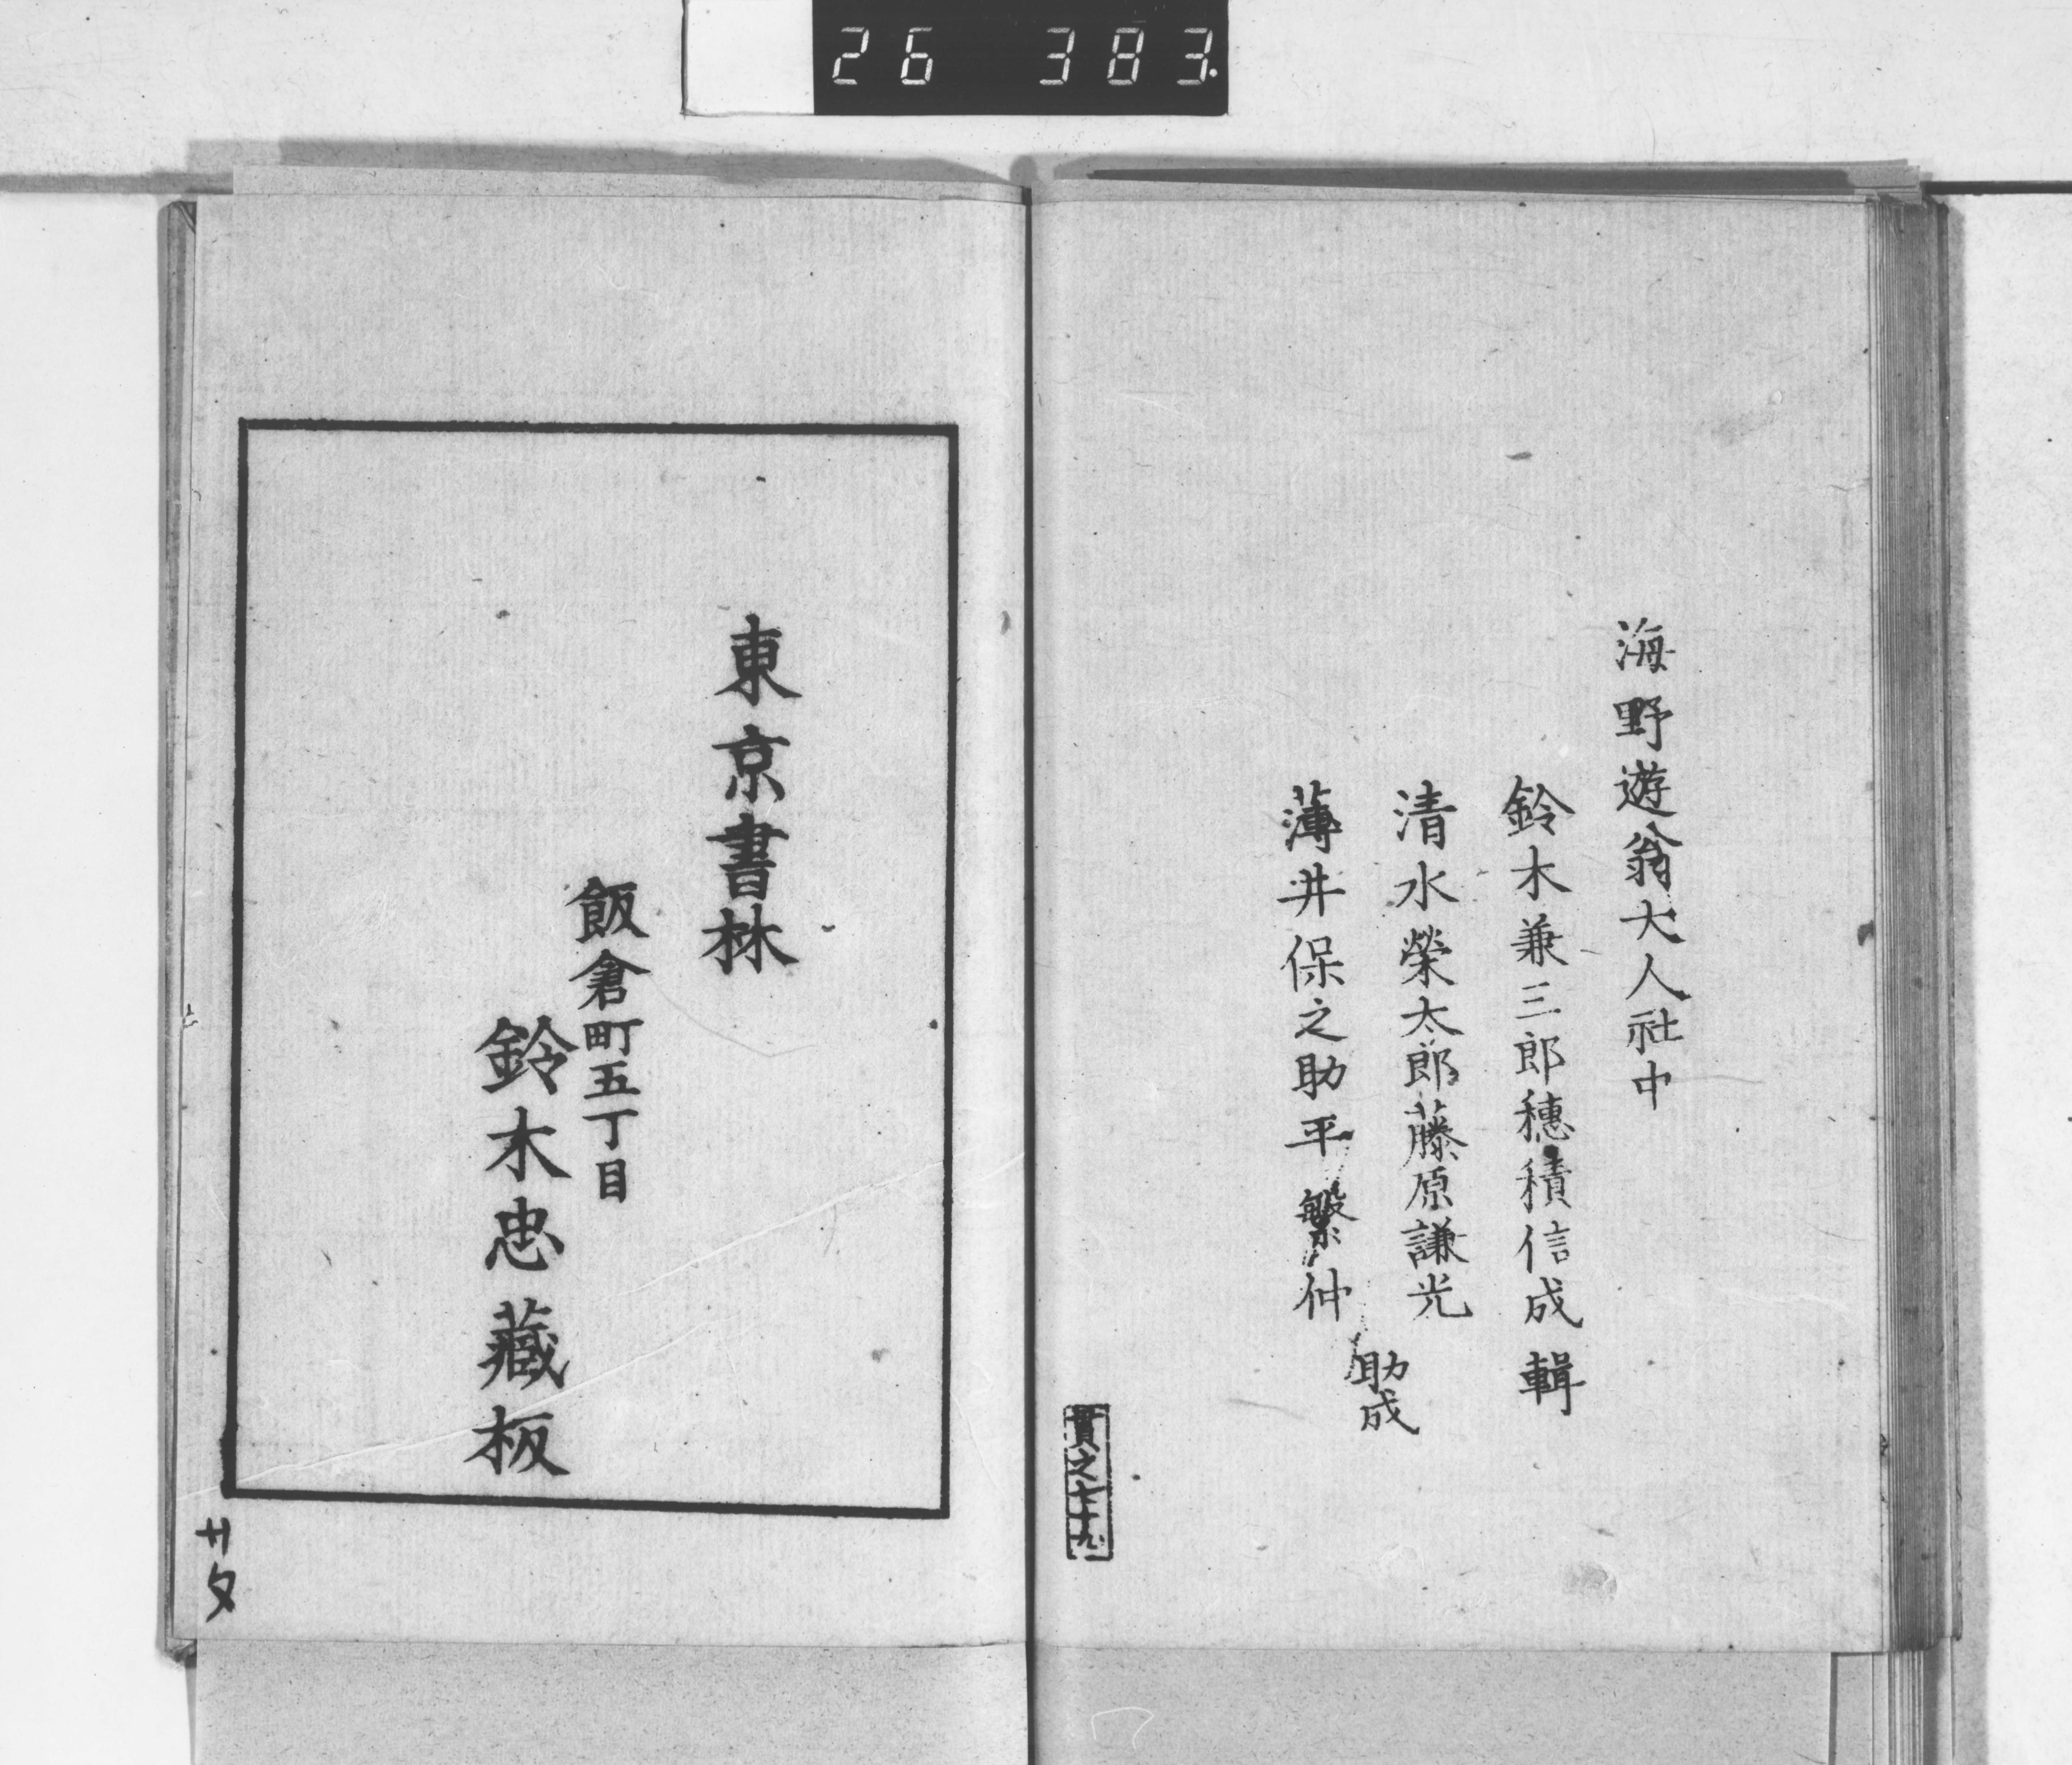 26 383
海野遊翁大人社中
鈴木兼三郎穗積信成 輯
清水榮太郎藤原謙光
薄井保之助平繁仲
助成
貫之七十九
東京書林
飯倉町五丁目
鈴木忠藏板